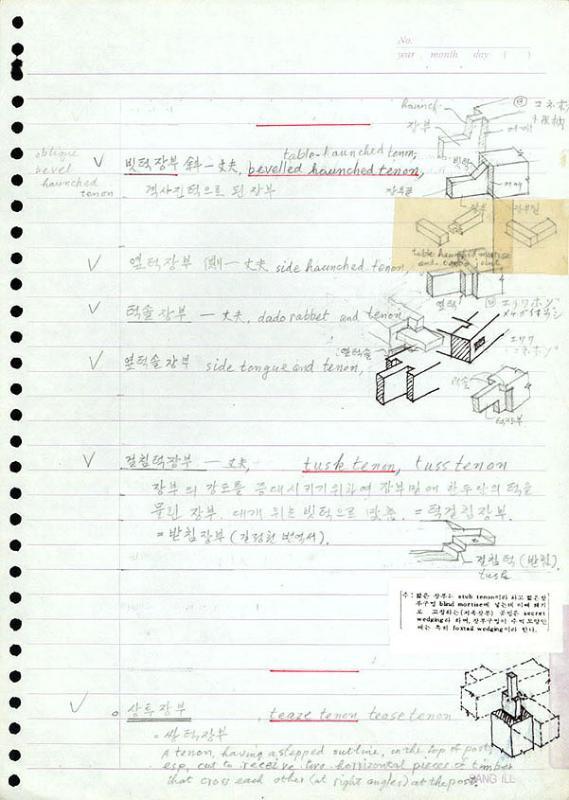 No.
year month day ( )
haunch
장부
table-haunched tenon,
oblique
bevel
haunched
tenon
빗턱장부 斜一丈夫, bevelled haunched tenon,
빗턱
어깨
경사진턱으로 된 장부
table haunched mortise
and tenon joint
옆턱장부 側一丈夫 side haunched tenon,
옆턱
턱솔장부 一丈夫, dado rabbet and tenon
옆턱솔
옆턱솔장부 side tongue and tenon,
턱솔
걸침턱장부 一丈夫, tusk tenon, tuss tenon
장부의 강도를 증대시키기위하여 장부밑에 한두단의 턱을
물린 장부. 대개 위는 빗턱으로 맞춤. = 턱걸침장부.
= 받침장부
걸침턱 (받침)
tusk
주: 짧은 장부는 stub tenon이라 하고 짧은장
부구멍 blind mortise에 넣는데 이때 쐐기
로 고정하는(지옥장부) 공법은 secret
wedging라 하며, 장부구멍이 주먹모양인
때는 특히 foxtail wedging이라 한다.
상투장부, teaze tenon, tease tenon
쌍턱장부
A tenon, having a stepped outline, in the top of post,
esp. cut to receive two horizontal pieces of timber
that cross each other (at right angles) at the post.
SANG ILL